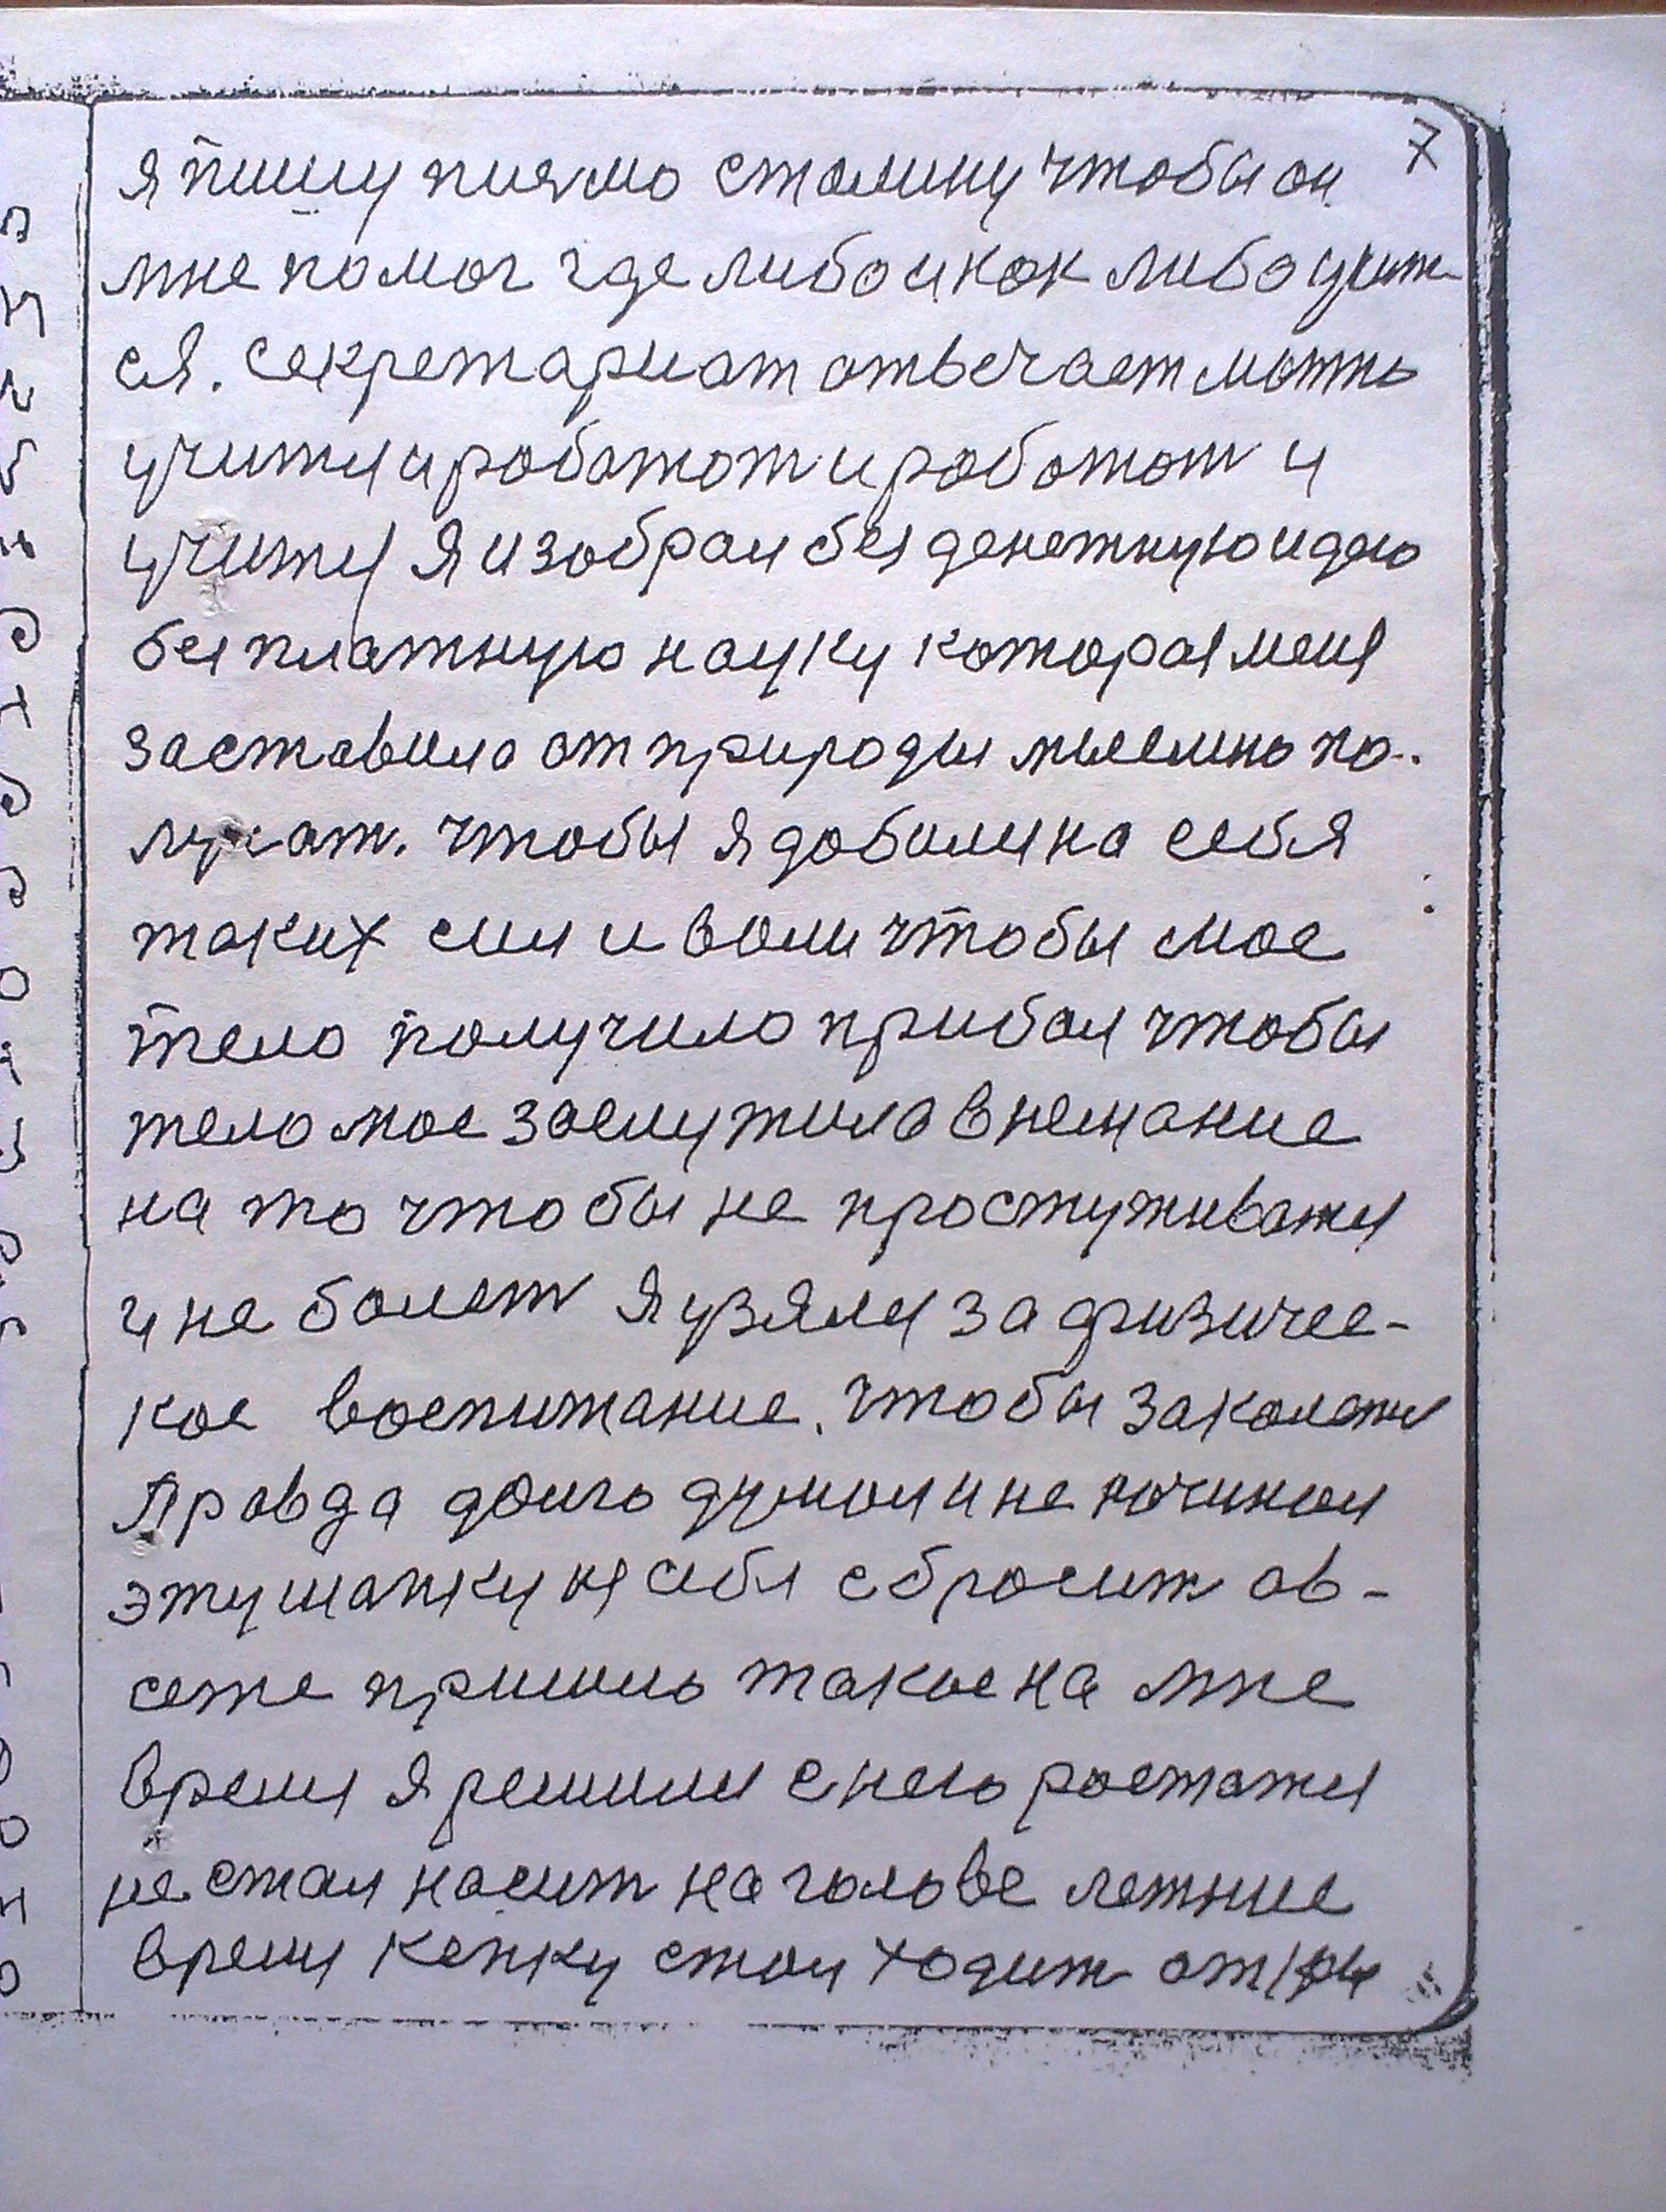 7
я пишу писмо сталину чтобы он
мне помог где либо и как либо учит
ся. секретариат отвечает мотно
учитя и работат и работат и
учитя Я изобрал без денежную идею
без платную науку которая меня
заставила от природы мысмно по-
лучат. чтобы я добился на себя
таких сил и воли чтобы мое
тело получило прибал чтобы
тело мое заслужило внемание
на то чтобы не простуживатя
и не болет Я узялся за физичес-
кое воспитание. чтобы закалятя
Правда долго думал и не начинал
эту шапку из себя сбросит ов-
сеже пришло такое на мне
время Я решился снею ростатя
не стал насит на голове летние
время кепку стал ходит откры